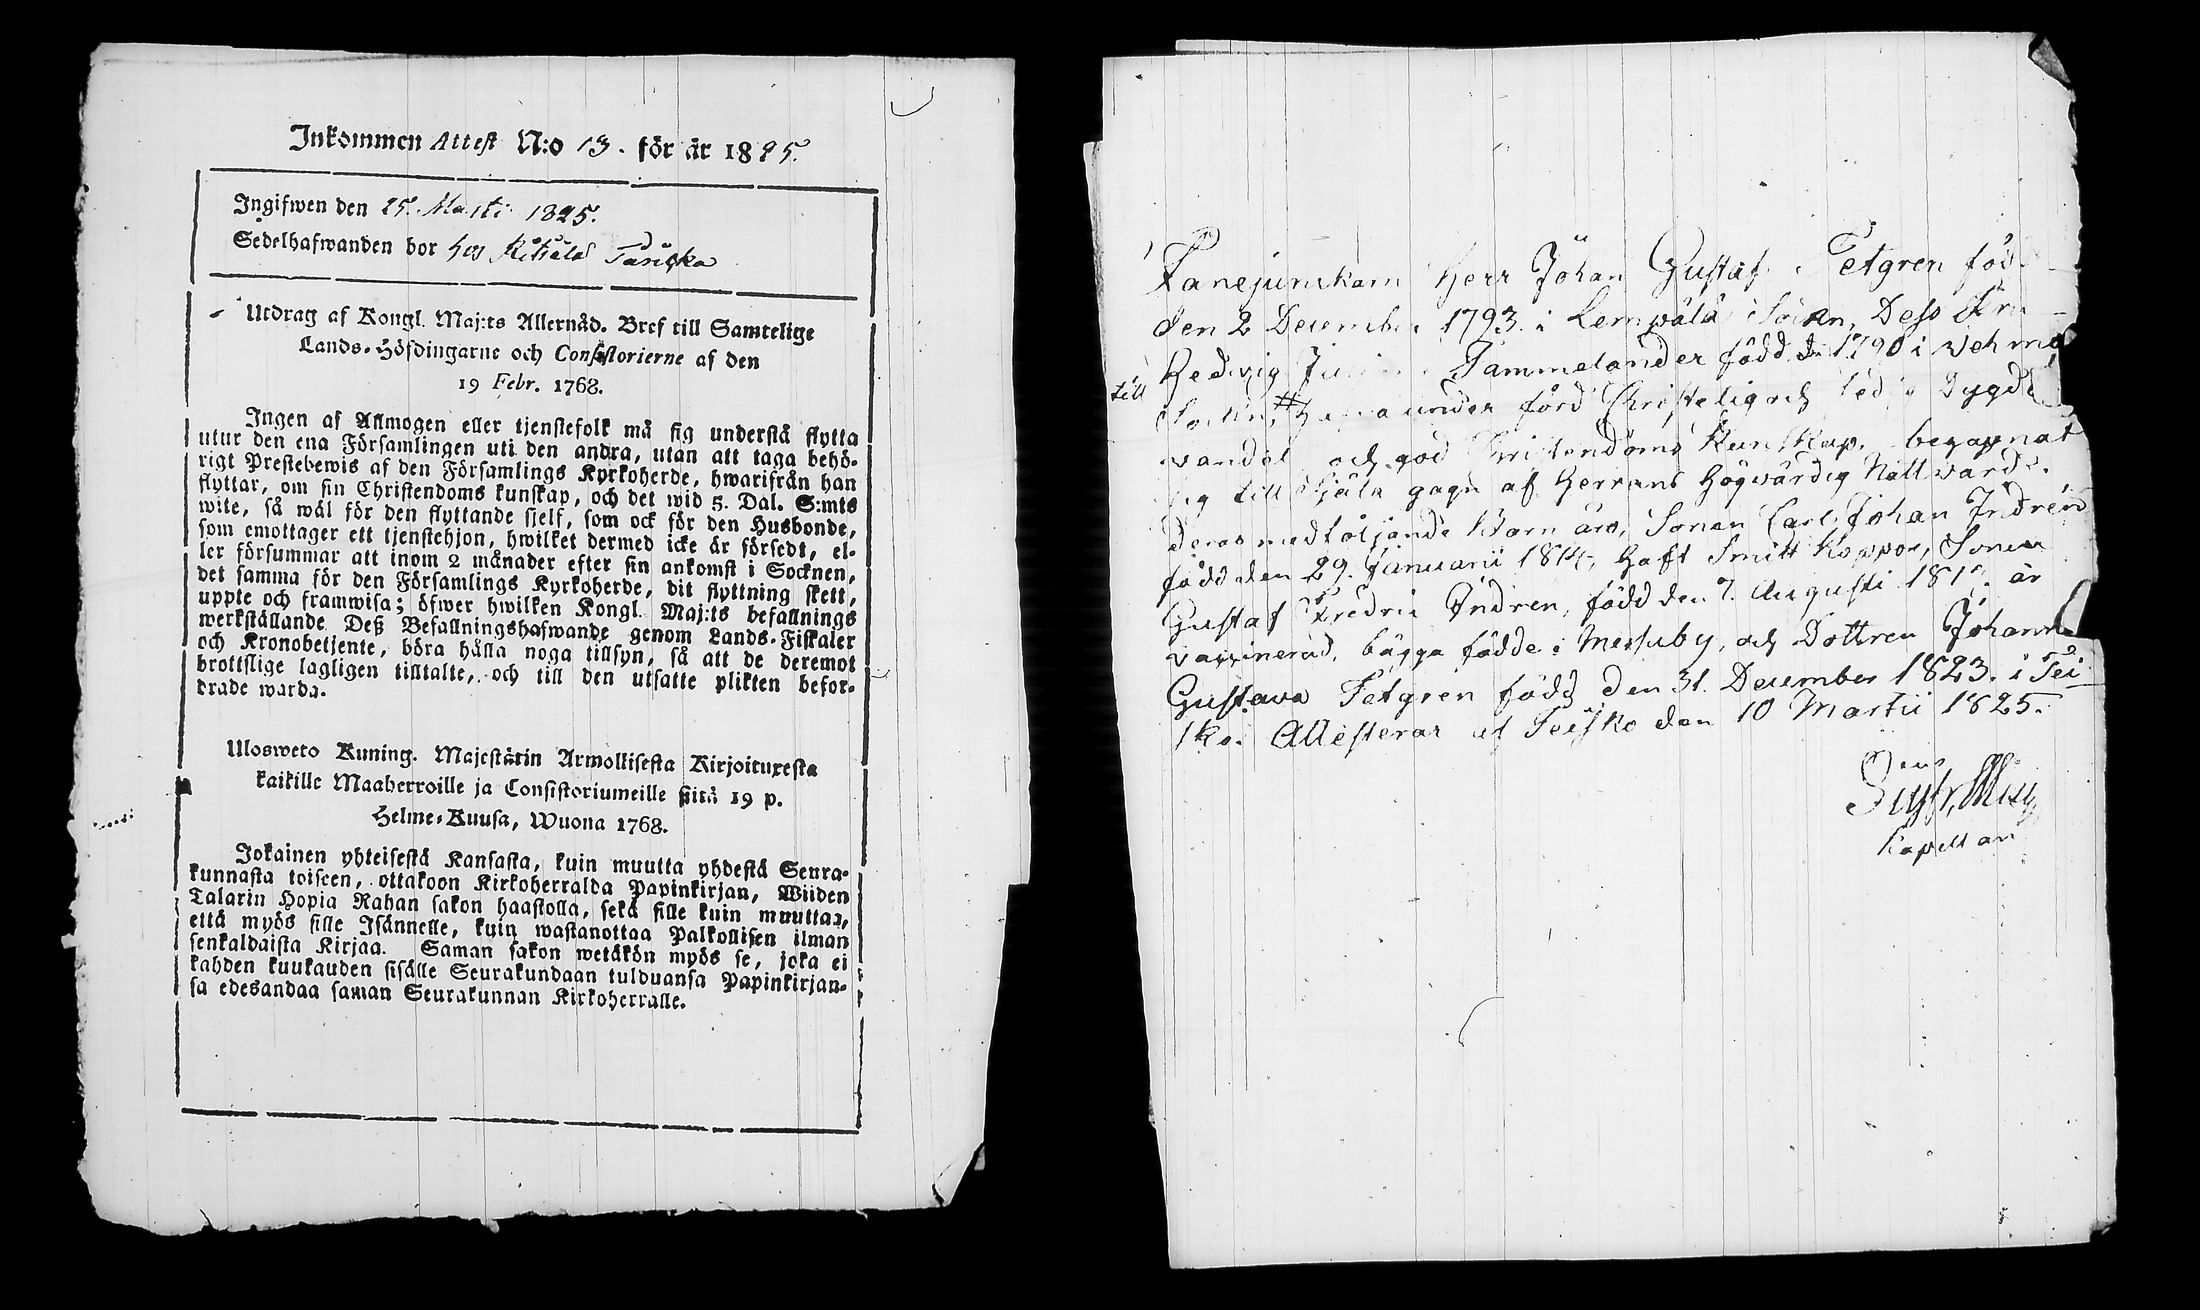 Inkommen Attest N:o 13. för år 1825.
Ingifwen den 25. Martii 1825.
Sedelhafwanden bor hos
Utdrag af Kongl. Maj:ts Allernåd. Bref till Samtelige
Lands-Höfdingarne och Consistorierne af den
19 Febr. 1768.
Ingen af Allmogen eller tjenstefolk må sig understå flytta
utur den ena Församlingen uti den andra, utan att taga behö-
rigt Prestebewis af den Församlings Kyrkoherde, hwarifrån han
flyttar, om sin Christendoms kunskap, och det wid 5. Dal. S:mts
wite, så wäl för den flyttande sjelf, som ock för den Husbonde,
som emottager ett tjenstehjon, hwilket dermed icke är försedt, el-
ler försummar att inom 2 månader efter sin ankomst i Socknen,
det samma för den Församlings Kyrkoherde, dit flyttning skett,
uppte och framwisa; öfwer hwilken Kongl. Maj:ts befallnings
werkställande Deß Befallningshafwande genom Lands-Fiskaler
och Kronobetjente, böra hålla noga tillsyn, så att de deremot
brottslige lagligen tilltalte, och till den utsatte plikten befor-
drade warda.
Ulosweto Kuning. Majestätin Armollisesta Kirjoituxesta
kaikille Maaherroille ja Consistoriumeille siitä 19 p.
Helme-Kuusa, Wuona 1768.
Jokainen yhteisestä Kansasta, kuin muutta yhdestä Seura-
kunnasta toiseen, ottakoon Kirkoherralda Papinkirjan, Wiiden
Talarin Hopia Rahan sakon haastolla, sekä sille kuin muuttaa,
että myös sille Isännelle, kuin wastanottaa Palkollisen ilman
senkaldaista Kirjaa. Saman sakon wetäkön myös se, joka ei
kahden kuukauden sisälle Seurakundaan tulduansa Papinkirjan-
sa edesandaa saman Seurakunnan Kirkoherralle.
Fanejunkarn Herr Johan Gustaf Fetgren född
den 2 December 1793. i Lempälä Sockn, Dess Fru
Hedvig Tammelander född 1790 i Vehmo
till Sockn, hafva under förd Christelig och Dygde
vandel och god Kristendoms Kunskap, begagnat
sig till Själa gagn af Herrans Högvärdig Nattvard.
Deras medföljande Barn äro, Sonen Carl Johan Indrén
född den 29. Januarii 1814, Haft Smitt Koppor, Sonen
Gustaf Fredric Indren, född den 7. Augusti är
vaccinerad, bägge födde i Messuby, och Dottren Johanna
Gustava Fetgren född den 31. December 1823. i Tei-
sko. Attesterar af Teisko den 10 Martii 1825.
Kapellan